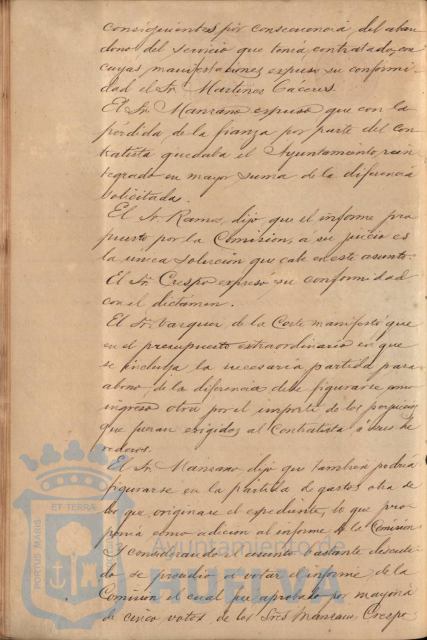 consiguientes por consecuencia del aban
dono del servicio que tenia contratado, con
cuyas manifestaciones expuso su conformi
dad el Sr. Martinez Cáceres.
El Sr. Manzano expuso que con la
pérdida de la fianza por parte del con
tratista quedaba el Ayuntamiento, rein
tegrado en mayor suma de la diferencia
solicitada.
El Sr. Ramos, dijo que el informe pro
puesto por la Comision, á su juicio es
la unica solucion que cabe en este asunto.
El Sr. Crespo expresó su conformidad
con el dictamen.
El Sr. Vazquez de la Corte manifestó que
en el presupuesto extraordinario en que
se incluya la necesaria partida para
abono de la diferencia debe figurarse como
ingreso otra por el importe de los perjuicios
que fueran exigidos al Contratista ó sus he
rederos.
El Sr. Manzano dijo que tambien podria
figurarse en la partida de gastos otra de
los que originare el expediente, lo que pro
ponia como adicion al informe de la Comision
Y considerando el asunto bastante discuti
do se procedió a votar el informe de la
Comision el cual fue aprobado por mayoria
de cinco votos de los Sres Manzano, Crespo
PORTUS MARIS ET TERRÆ
Ayuntamiento de
HUELVA